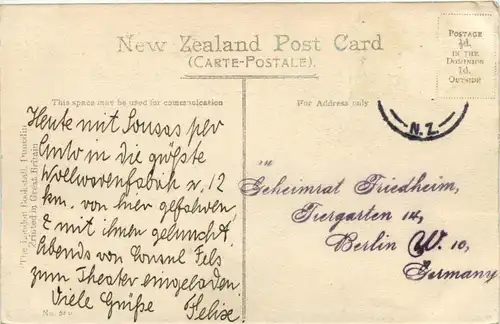 New Zealand Post Card
(CARTE-POSTALE).
POSTAGE
½d.
IN THE
DOMINION
1d.
OUTSIDE
This space may be used for communication
For Address only
N.Z.
Heute mit Sousas per
Auto in die größte
Wollwarenfabrik v. 12
km. von hier gefahren
& mit ihnen geluncht.
Abends von Consul Fels
zum Theater eingeladen
Viele Grüße Felix.
Geheimrat Friedheim,
Tiergarten 14,
Berlin W. 10,
Germany
The London Bookstall, Dunedin
Printed in Great Britain
No.